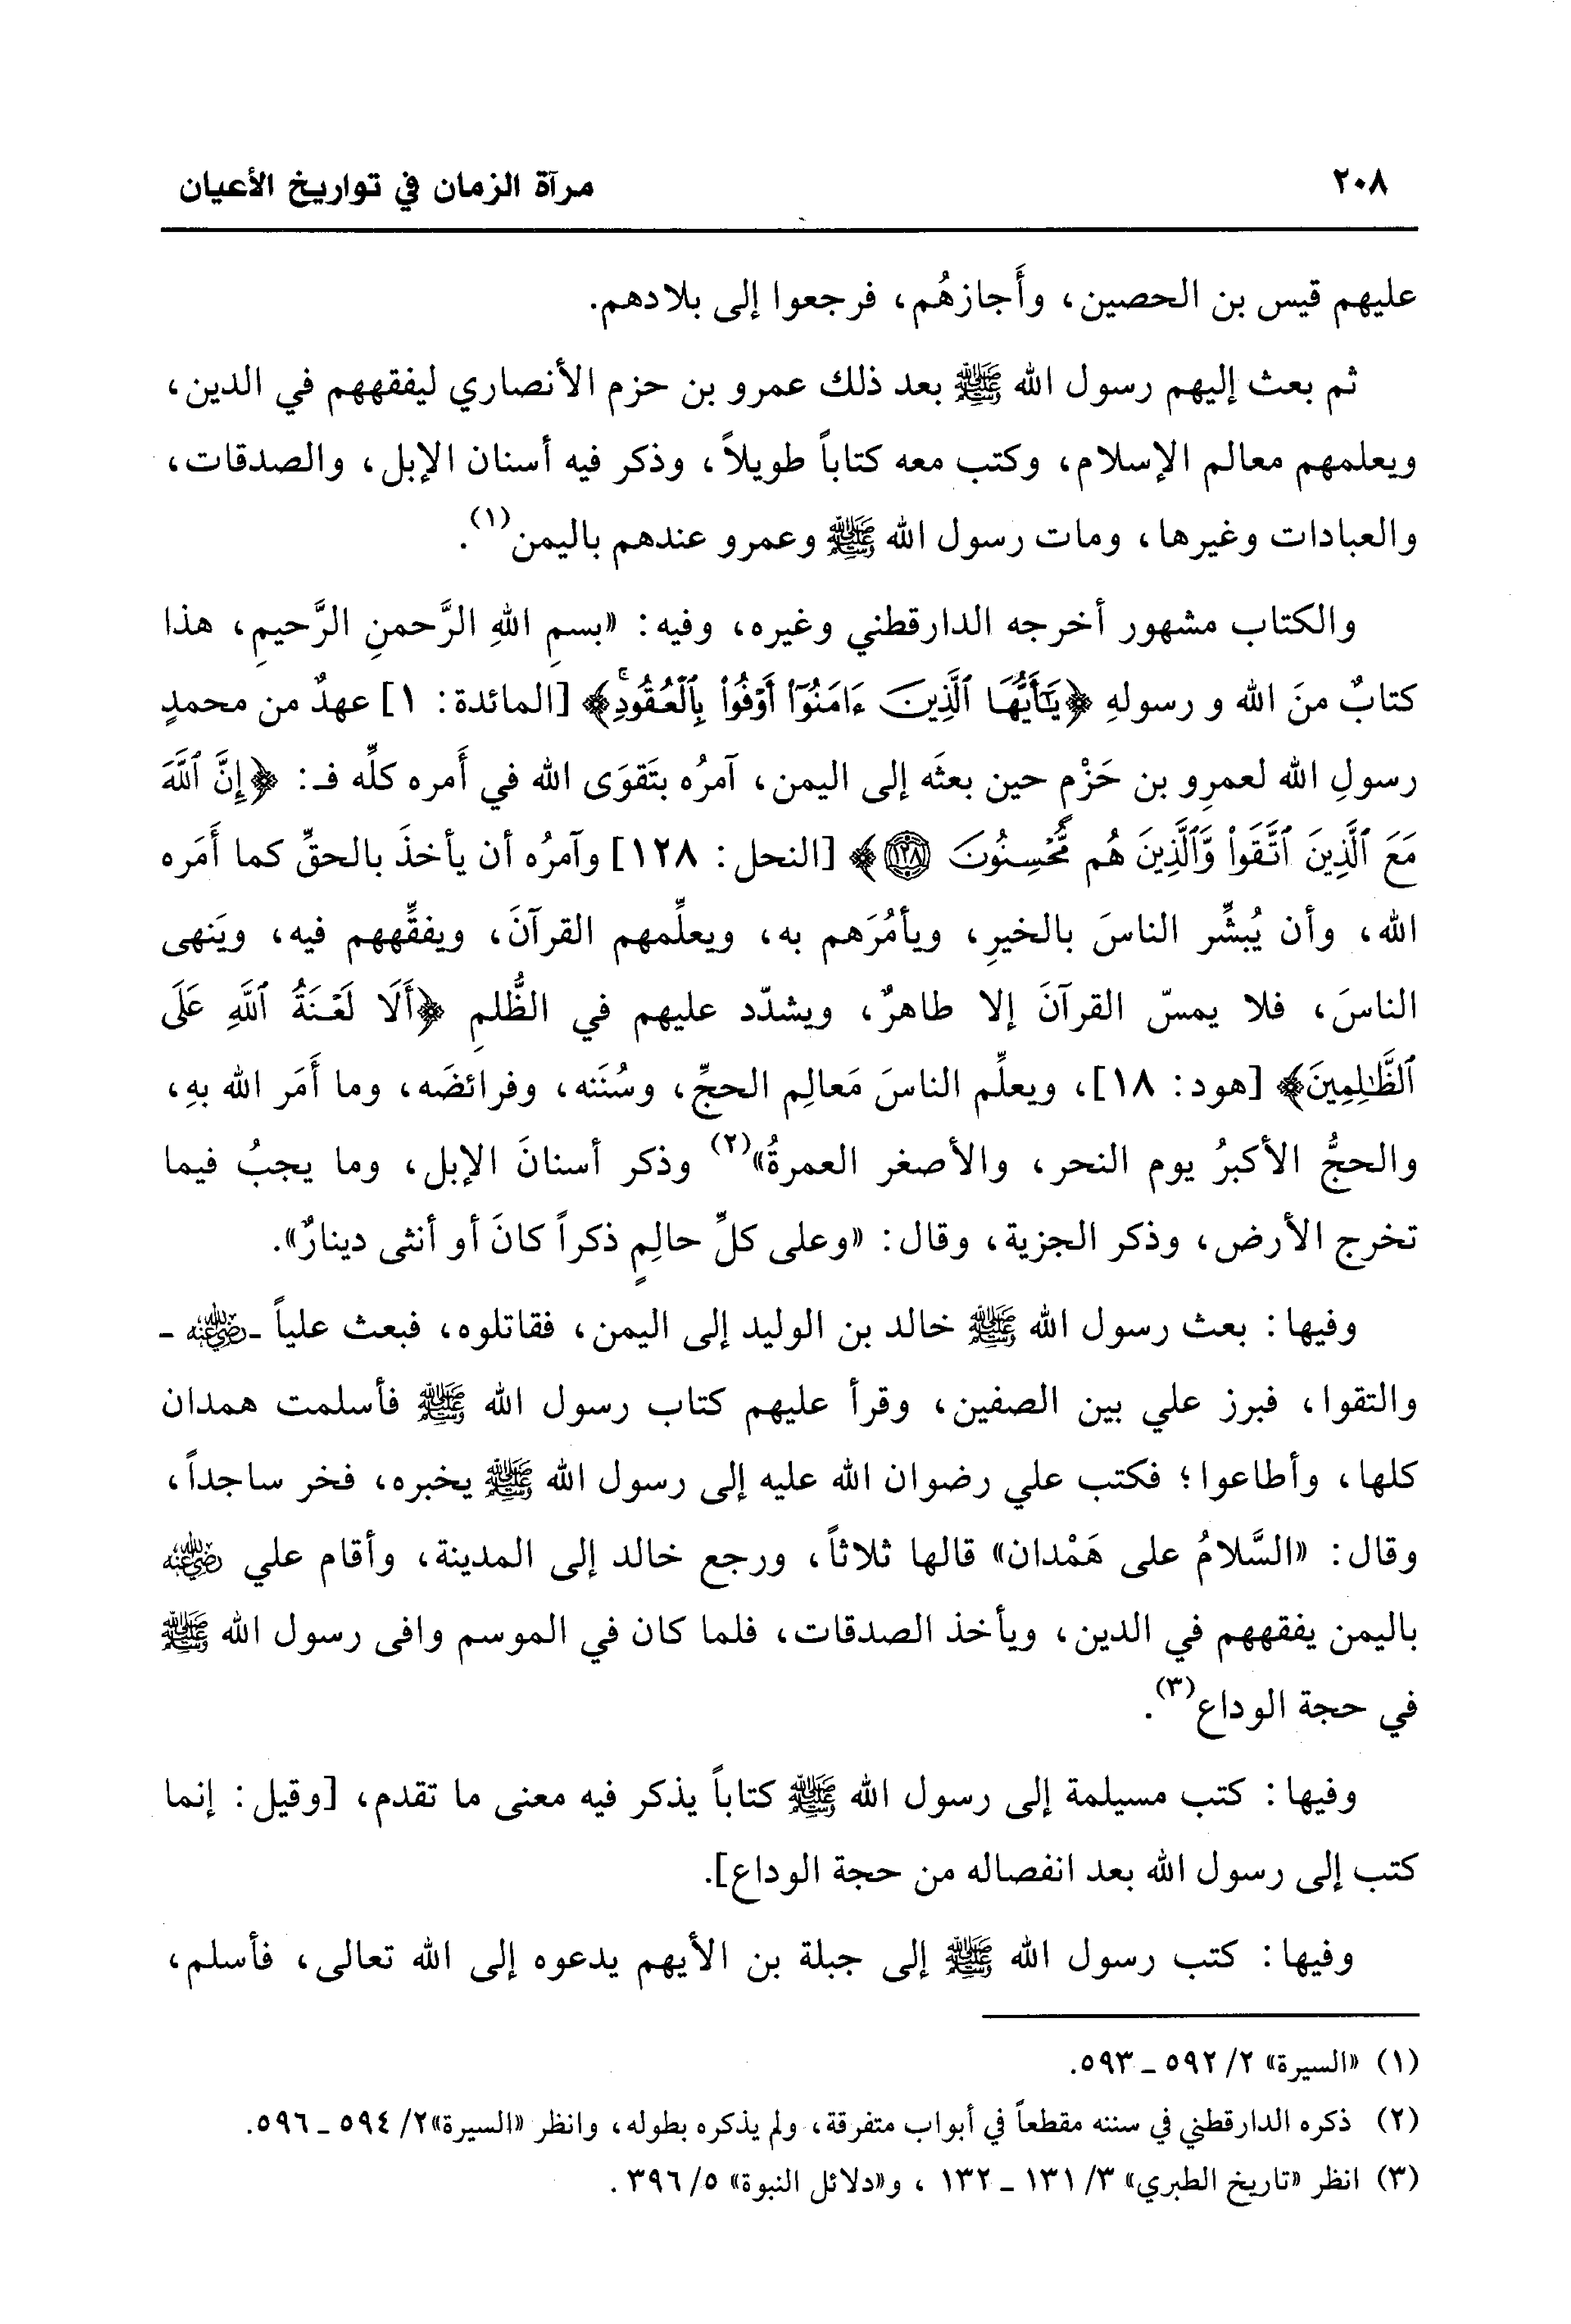 ٢٠٨ مرآة الزمان في تواريخ الأعيان
عليهم قيس بن الحصين، وأَجازهُم، فرجعوا إلى بلادهم.
ثم بعث إليهم رسول الله ﷺ بعد ذلك عمرو بن حزم الأنصاري ليفقههم في الدين،
ويعلمهم معالم الإسلام، وكتب معه كتاباً طويلاً، وذكر فيه أسنان الإبل، والصدقات،
والعبادات وغيرها، ومات رسول الله ﷺ وعمرو عندهم باليمن(١).
والكتاب مشهور أخرجه الدارقطني وغيره، وفيه: «بسمِ اللهِ الرَّحمنِ الرَّحيمِ، هذا
كتابٌ منَ الله و رسولهِ ﴿يَٰٓأَيُّهَا ٱلَّذِينَ ءَامَنُوٓا۟ أَوْفُوا۟ بِٱلْعُقُودِۚ﴾ [المائدة: ١] عهدٌ من محمدٍ
رسولِ الله لعمرِو بن حَزْمٍ حين بعثَه إلى اليمن، آمرُه بتَقوَى الله في أَمره كلِّه فـ: ﴿إِنَّ ٱللَّهَ
مَعَ ٱلَّذِينَ ٱتَّقَوا۟ وَّٱلَّذِينَ هُم مُّحْسِنُونَ ١٢٨﴾ [النحل: ١٢٨] وآمرُه أن يأخذَ بالحقِّ كما أَمَره
الله، وأن يُبشِّر الناسَ بالخيرِ، ويأمُرَهم به، ويعلِّمهم القرآنَ، ويفقِّههم فيه، ويَنهى
الناسَ، فلا يمسّ القرآنَ إلا طاهرٌ، ويشدّد عليهم في الظُّلمِ ﴿أَلَا لَعْنَةُ ٱللَّهِ عَلَى
ٱلظَّٰلِمِينَ﴾ [هود: ١٨]، ويعلِّم الناسَ مَعالِم الحجِّ، وسُنَنه، وفرائضَه، وما أَمَر الله بهِ،
والحجُّ الأكبرُ يوم النحر، والأصغر العمرةُ»(٢) وذكر أسنانَ الإبل، وما يجبُ فيما
تخرج الأرض، وذكر الجزية، وقال: «وعلى كلِّ حالِمٍ ذكراً كانَ أو أنثى دينارٌ».
وفيها: بعث رسول الله ﷺ خالد بن الوليد إلى اليمن، فقاتلوه، فبعث علياً - رضي الله عنه -
والتقوا، فبرز علي بين الصفين، وقرأ عليهم كتاب رسول الله ﷺ فأسلمت همدان
كلها، وأطاعوا؛ فكتب علي رضوان الله عليه إلى رسول الله ﷺ يخبره، فخر ساجداً،
وقال: «السَّلامُ على هَمْدان» قالها ثلاثاً، ورجع خالد إلى المدينة، وأقام علي رضي الله عنه
باليمن يفقههم في الدين، ويأخذ الصدقات، فلما كان في الموسم وافى رسول الله ﷺ
في حجة الوداع(٣).
وفيها: كتب مسيلمة إلى رسول الله ﷺ كتاباً يذكر فيه معنى ما تقدم، [وقيل: إنما
كتب إلى رسول الله بعد انفصاله من حجة الوداع].
وفيها: كتب رسول الله ﷺ إلى جبلة بن الأيهم يدعوه إلى الله تعالى، فأسلم،
(١) «السيرة» ٢/ ٥٩٢ ـ ٥٩٣.
(٢) ذكره الدارقطني في سننه مقطعاً في أبواب متفرقة، ولم يذكره بطوله، وانظر «السيرة»٢/ ٥٩٤ ـ ٥٩٦.
(٣) انظر «تاريخ الطبري» ٣/ ١٣١ ـ ١٣٢ ، و«دلائل النبوة» ٥/ ٣٩٦ .